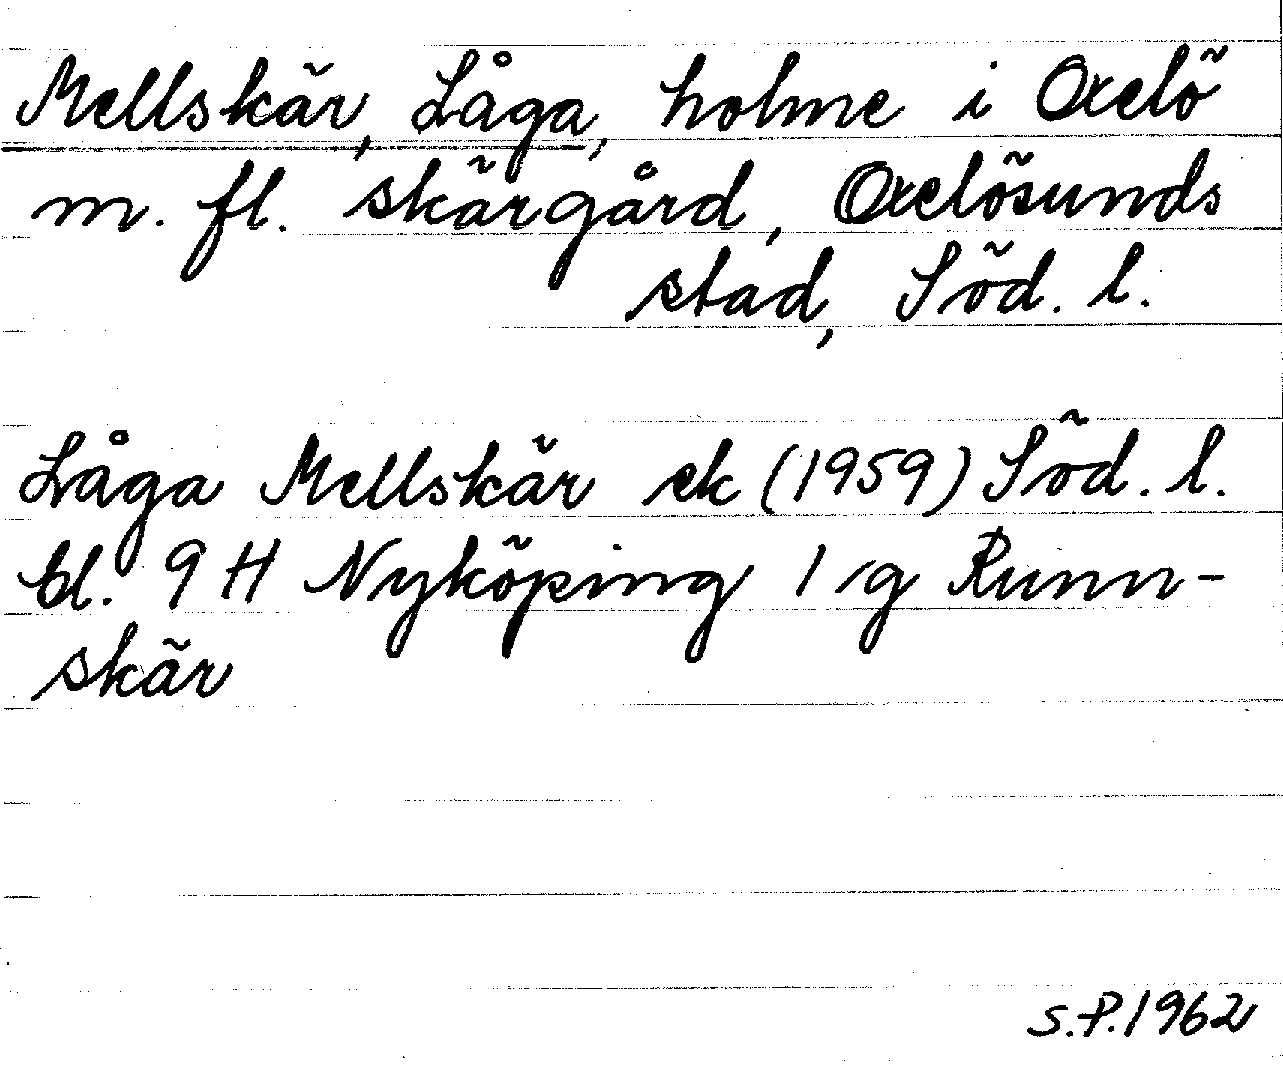 Mellskär, Låga, holme i Oxelö
m. fl. skärgård, Oxelösunds
stad, Söd. l.
Låga Mellskär ek (1959) Söd. l.
bl. 9 H Nyköping 1 g Runn-
skär
S.P. 1962